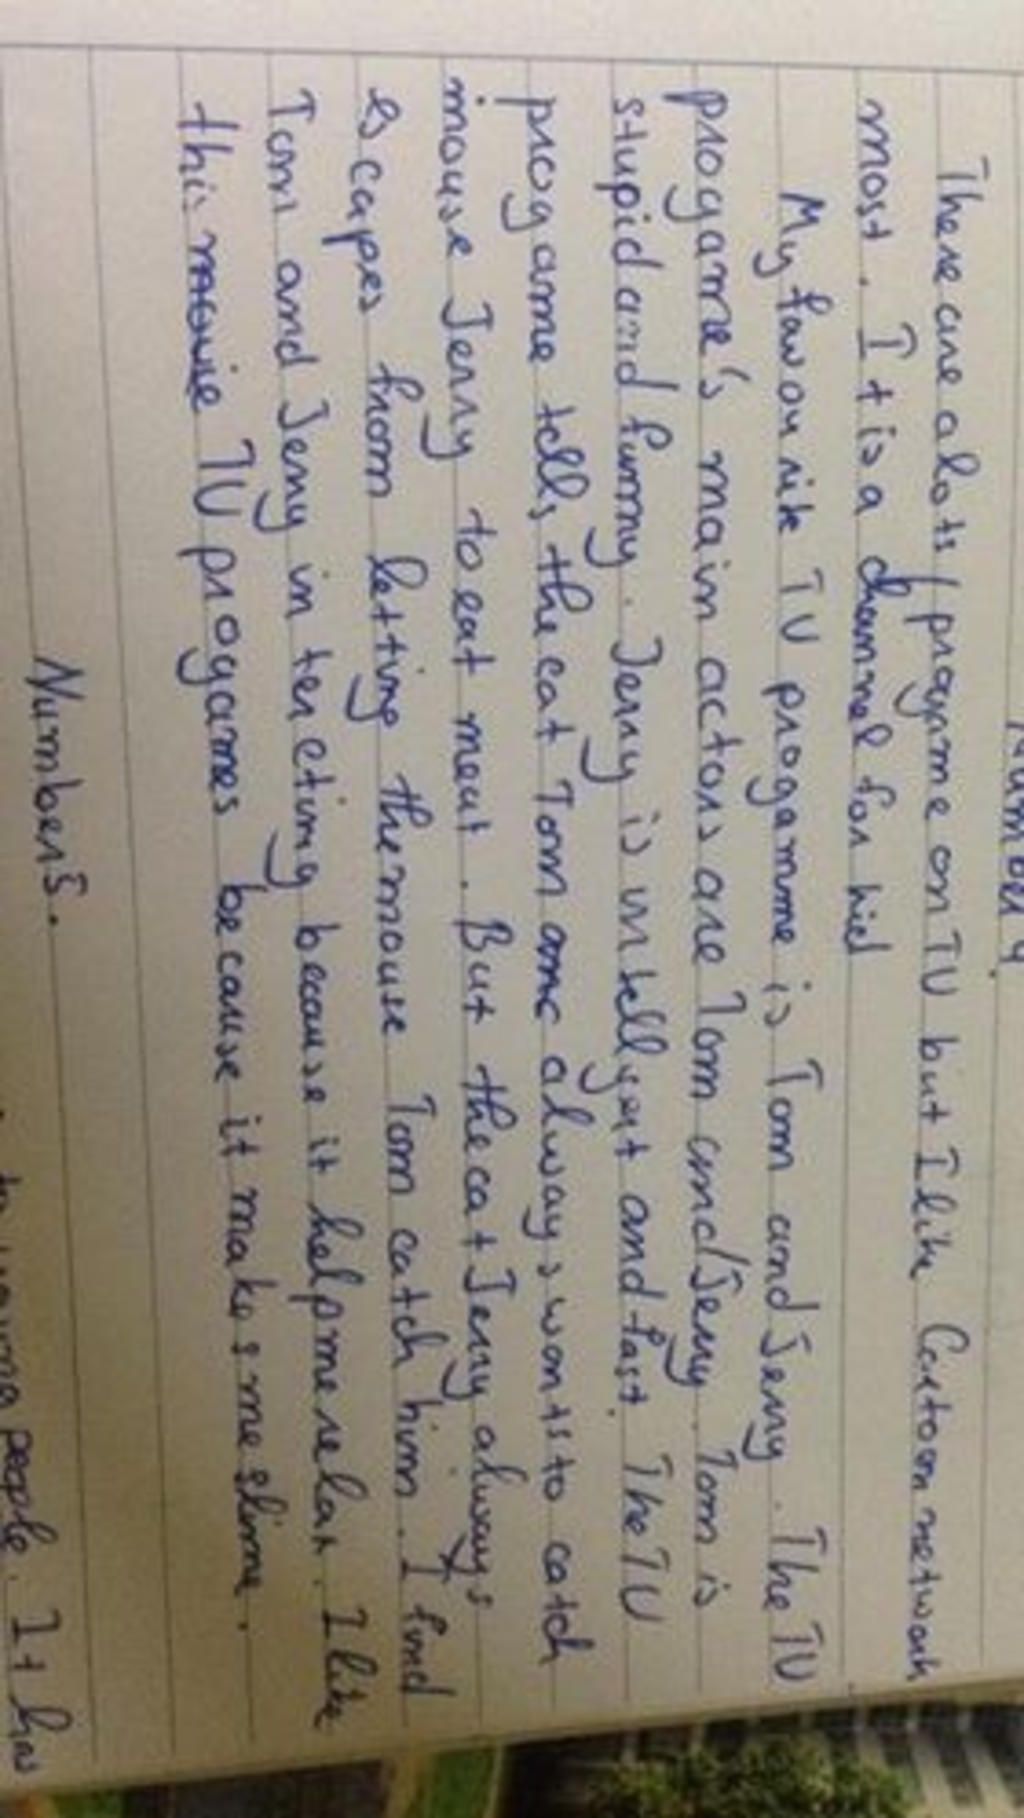 Number 4.
There are alots / progrme on TV but I like Cartoon network
most. It is a channel for kid
My favourite TV progamme is Tom and Jerry. The TV
progame's main actors are Tom and Jerry. Tom is
stupid and funny. Jerry is intellgent and fast. The TV
progame tells the cat Tom always wants to catch
mouse Jerry to eat meat. But the cat Jerry always
escapes from letting the mouse Tom catch him. I find
Tom and Jerry in tereting because it help me relax. I like
this TV progames because it makes me slime.
Number 5.
young people. It has